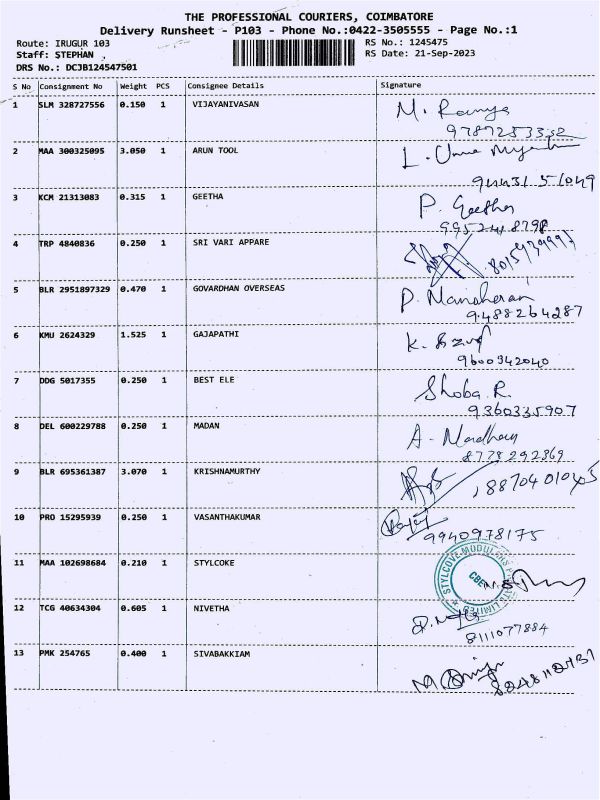 THE PROFESSIONAL COURIERS, COIMBATORE
Delivery Runsheet - P103 - Phone No.:0422-3505555 - Page No.:1
Route: IRUGUR 103 RS No.: 1245475
Staff: STEPHAN RS Date: 21-Sep-2023
DRS No.: DCJB124547501
S No Consignment No Weight PCS Consignee Details Signature
1 SLM 328727556 0.150 1 VIJAYANIVASAN M. Ramya
2 MAA 300325095 3.050 1 ARUN TOOL
3 KCM 21313083 0.315 1 GEETHA P. Geetha
4 TRP 4840836 0.250 1 SRI VARI APPARE
5 BLR 2951897329 0.470 1 GOVARDHAN OVERSEAS P. Manoharan
9488264287
6 KMU 2624329 1.525 1 GAJAPATHI K.
9600342040
7 DDG 5017355 0.250 1 BEST ELE Shoba. R.
9360335907
8 DEL 600229788 0.250 1 MADAN A - Madhan
8778292369
9 BLR 695361387 3.070 1 KRISHNAMURTHY
10 PRO 15295939 0.250 1 VASANTHAKUMAR
9940978175
11 MAA 102698684 0.210 1 STYLCOKE
STYLCOVE MODULARS PRIVATE LIMITED
CBE
12 TCG 40634304 0.605 1 NIVETHA
8111077884
13 PMK 254765 0.400 1 SIVABAKKIAM